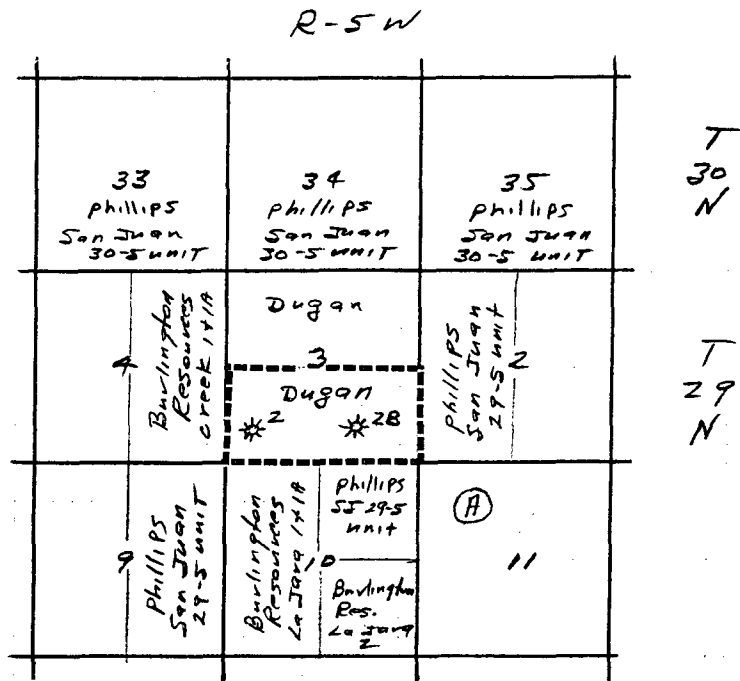 R-5W
33
phillips
San Juan
30-5 unit
34
phillips
San Juan
30-5 unit
35
phillips
San Juan
30-5 unit
T
30
N
4
Burlington
Resources
creek 1+1A
Dugan
3
Dugan
2
2B
phillips
San Juan
29-5 unit
2
T
29
N
9
Phillips
San Juan
29-5 unit
Burlington
Resources
La Jara 1+1A
10
phillips
SJ 29-5
unit
Burlington
Res.
La Jara
2
A
11